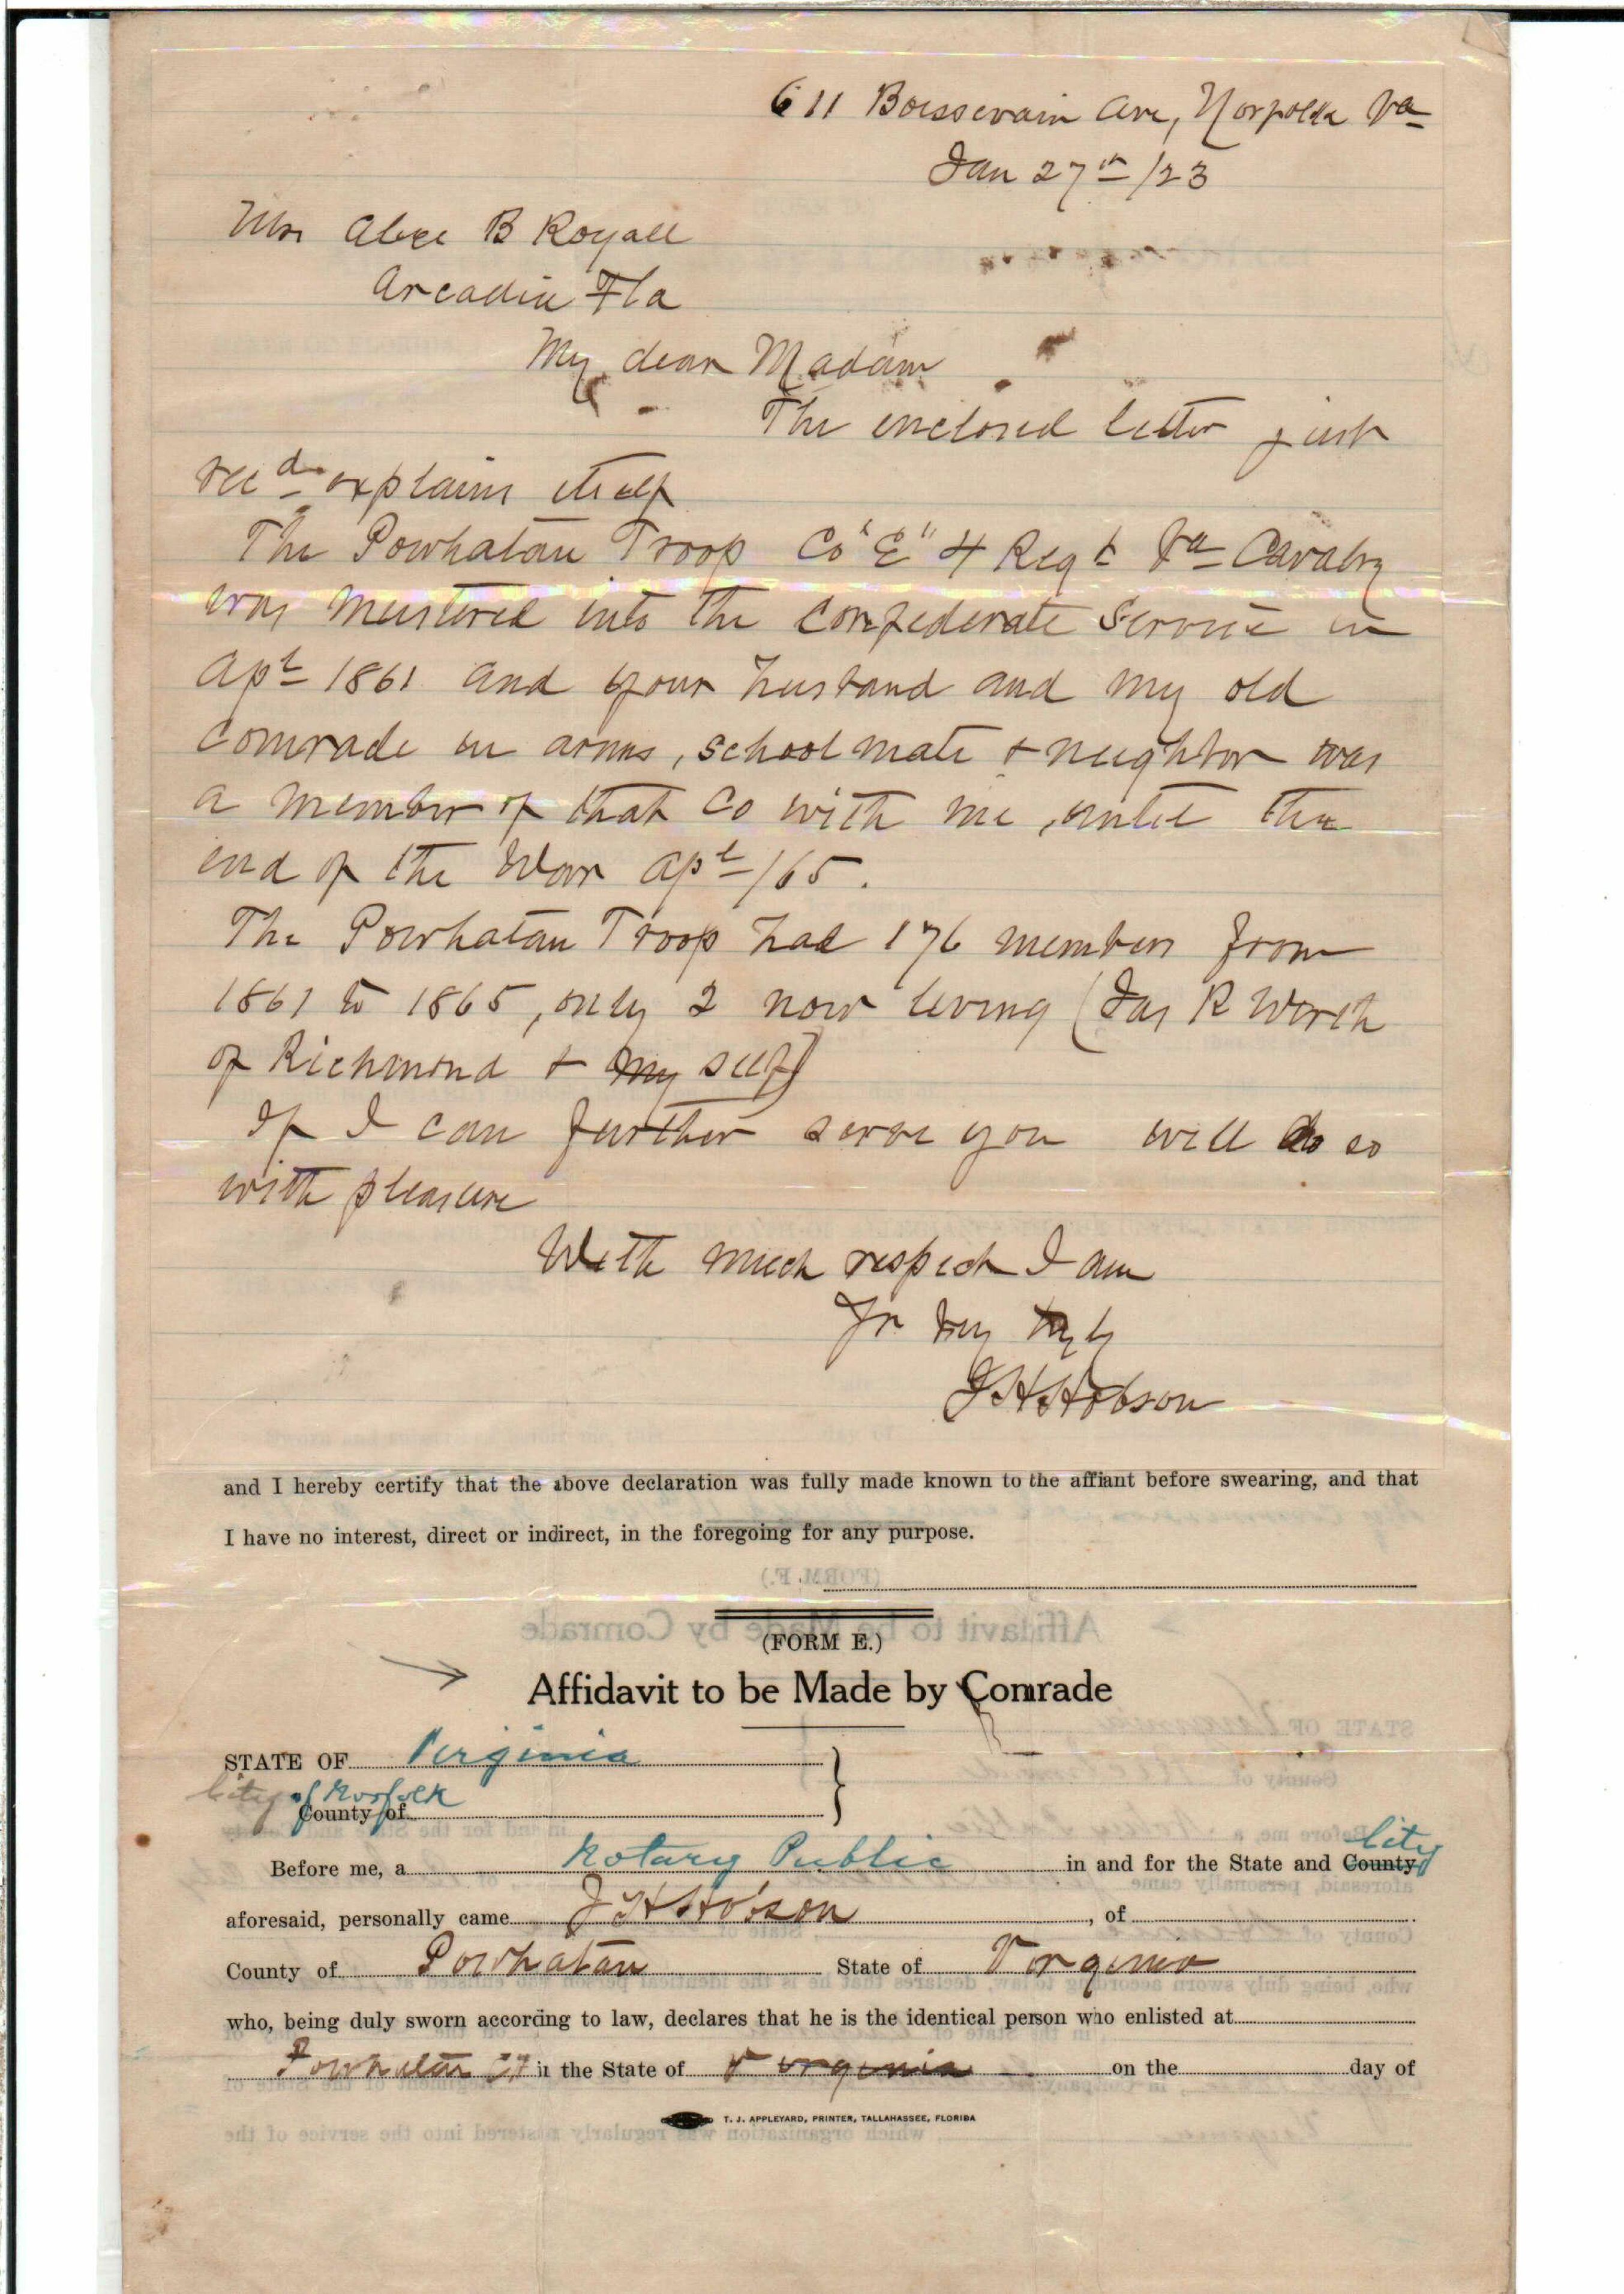 611 Boissevain Ave, Norfolk Va
Jan 27th /23
Mrs Alice B Royall
Arcadia Fla
My dear Madam
The enclosed letter just
recd explains itself
The Powhatan Troop Co "E" 4 Regt Va Cavalry
was mustered into the Confederate Service in
Apl 1861 and your husband and my old
comrade in arms, school mate & neighbor was
a member of that Co with me, until the
end of the War Apl /65.
The Powhatan Troop had 176 members from
1861 to 1865, only 2 now living (Jas R Werth
of Richmond & my self)
If I can further serve you will do so
with pleasure
With much respect I am
Yr Very Trly
J H Hobson
and I hereby certify that the above declaration was fully made known to the affiant before swearing, and that
I have no interest, direct or indirect, in the foregoing for any purpose.
(FORM E.)
Affidavit to be Made by Comrade
STATE OF Virginia
City of Norfolk
County of
City
Before me, a Notary Public in and for the State and County
aforesaid, personally came J H Hobson, of
County of Powhatan State of Virginia
who, being duly sworn according to law, declares that he is the identical person who enlisted at
Powhatan CH in the State of Virginia on the day of
T. J. APPLEYARD, PRINTER, TALLAHASSEE, FLORIDA